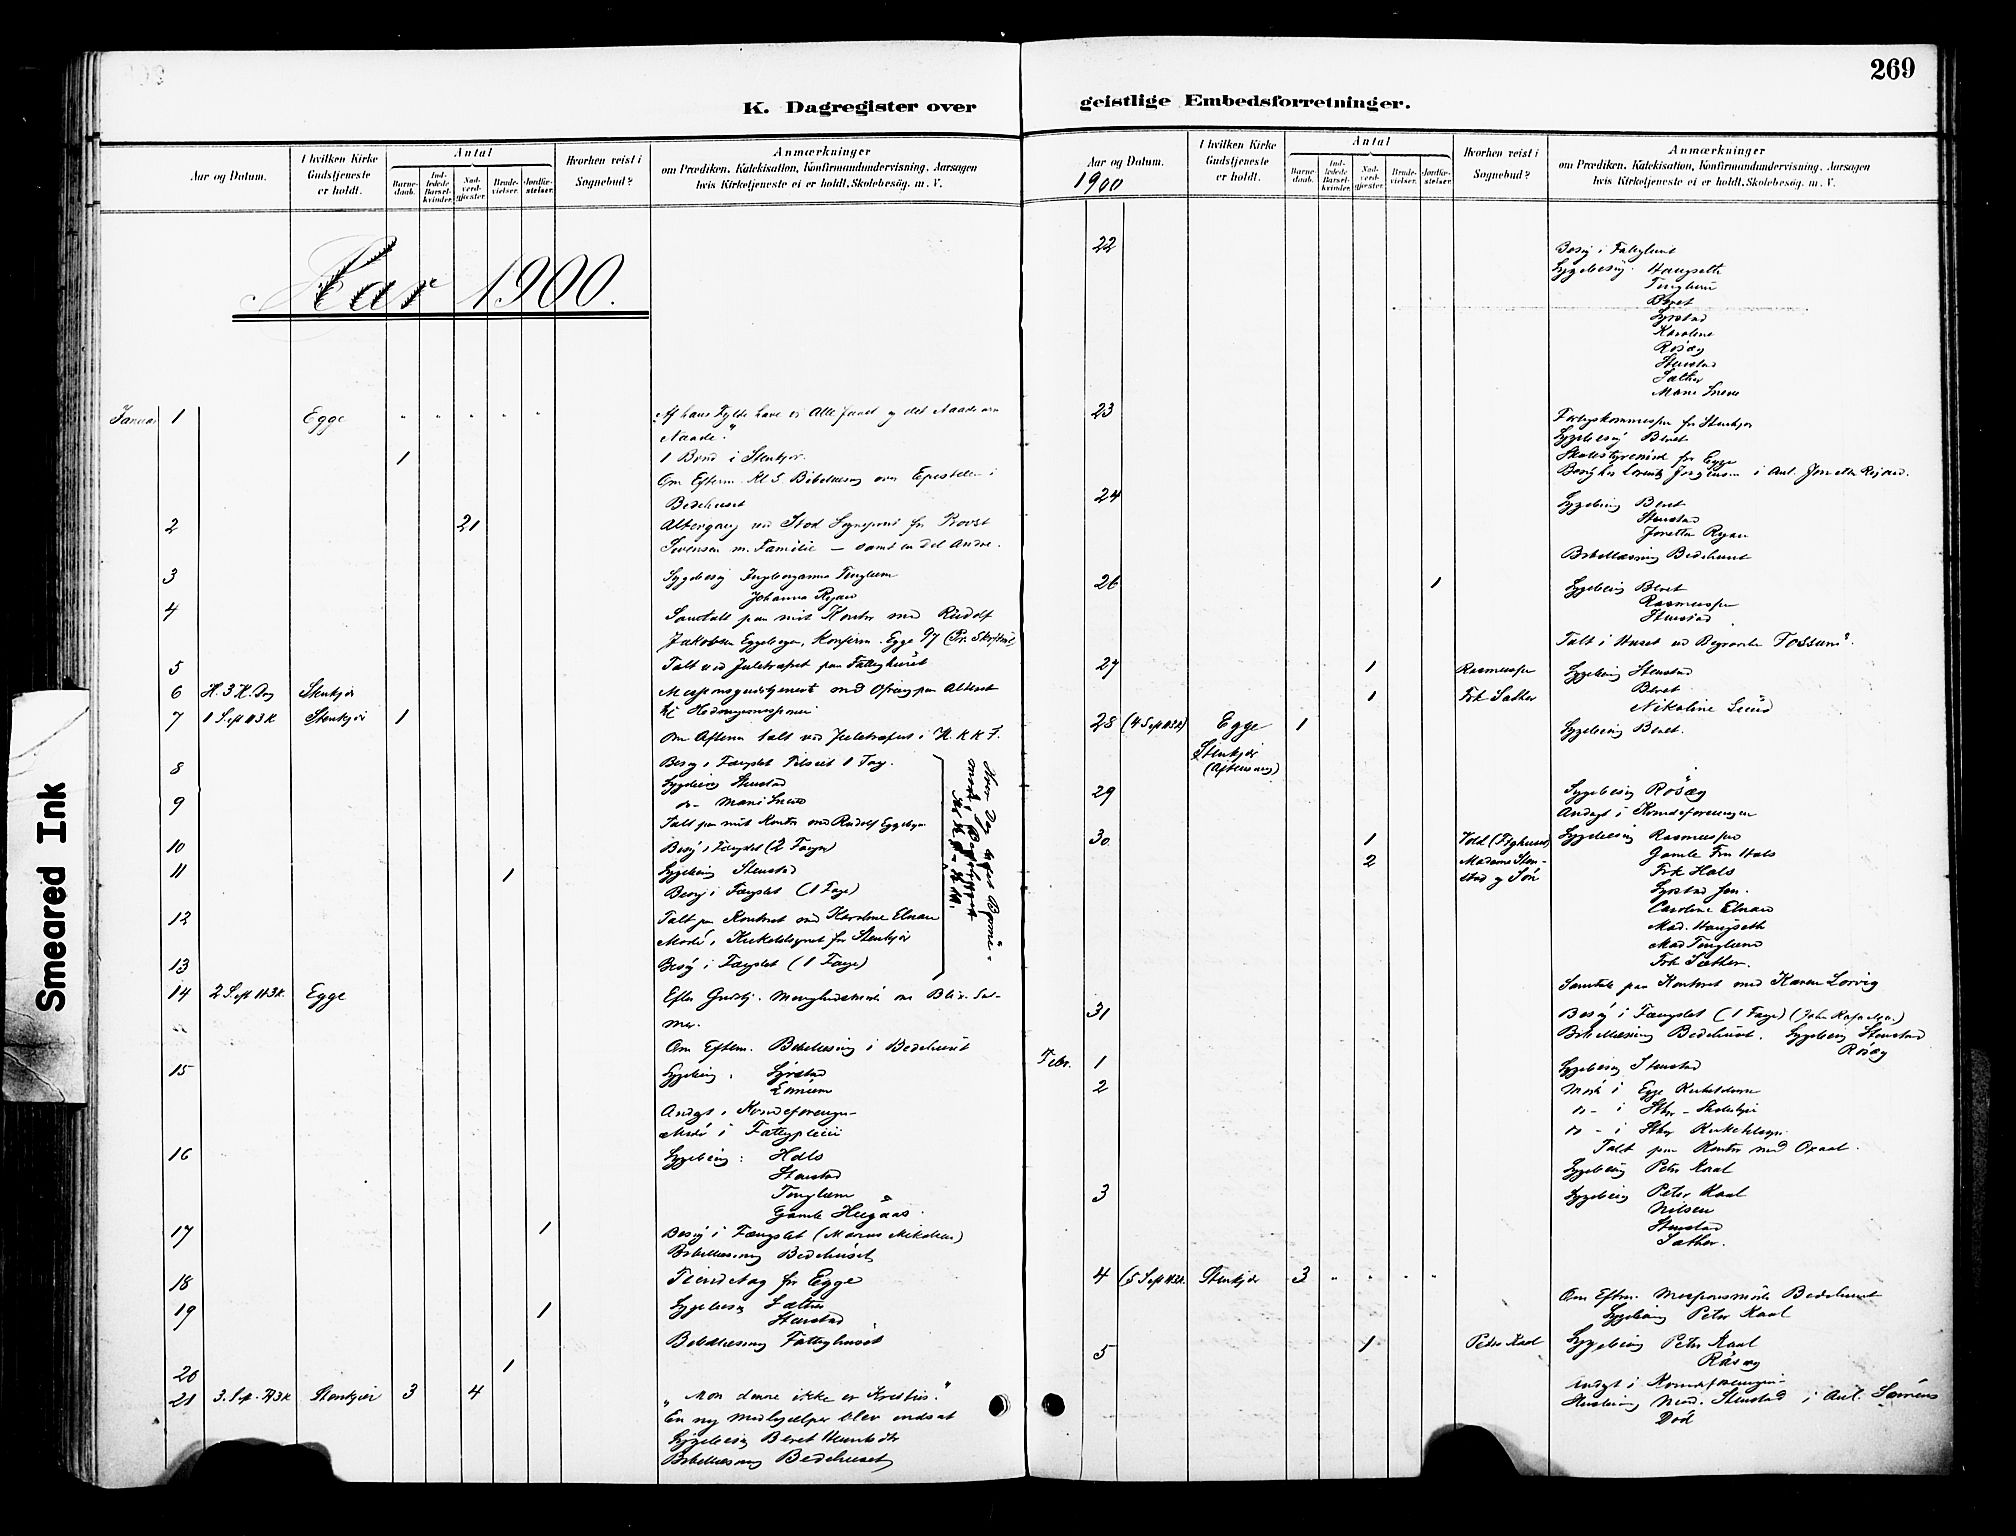 269
K. Dagregister over
geistlige Embedsforretninger.
Aar og Datum.
I hvilken Kirke Gudstjeneste er holdt.
Antal
Barne-daab.
Ind-ledede Barsel-kvinder.
Nad-verd-gjæster.
Brude-vielser.
Jordfæ-stelser.
Hvorhen reist i Sognebud?
Anmærkninger
om Prædiken, Katekisation, Konfirmandundervisning, Aarsagen
hvis Kirketjeneste ei er holdt, Skolebesøg, m. V.
Aar 1900.
Januar 1 Egge " " " " " "Af hans Fylde have vi Alle faaet og det Naade over
Naade."
1 1 Barn i Stenkjær.
Om Efterm. Kl 5 Bibellæsning over Epistelen i
Bedehuset
2 21 Altergang ved Stod Sogneprest for Provst
Sørensen m. Familie — samt en Del Andre.
3 Sygebesøg Ingeborganna Tinglum
Johanna Ryan
4 Samtale paa mit Kontor med Rudolf
Jakobsen Eggebogen, Konfirm. Egge
5 Talt ved Juletræfest paa Fattighuset
6 H. 3 K. Dag Stenkjær Missionsgudstjeneste med Ofring paa Alteret
til Hedningemissionen
7 1 S. e. H 3 K. Stenkjær 1
Om Aftenen talt ved Juletræfest i K. K. F.
8 Besøg i Fængslet 1 Fag.
Sygebesøg Stenstad
9 do - Mari Snese
Talt paa mit Kontor med Rudolf Eggebogen
10 Besøg i Fængslet (2 Fanger)
11 1 Sygebesøg Stenstad
Besøg i Fængslet (1 Fange)
12 Talt paa Kontoret med Karoline Elnan
Møde i Kirketilsynet for Stenkjær
13 Besøg i Fængslet (1 Fange)
Hver Dag
14 2 S. e. H 3 K. Egge Efter Gudstj. Menighedsmøde om Blix. Sal-
mer.
Om Efterm. Bibellæsning i Bedehuset
15 Sygebesøg: Syrstad
Andagt i Kvindeforeningen
Møde i Fattigpleien
16 Sygebesøg: Hals
Stenstad
Tinglum
Gamle Helgaas.
17 1 Besøg i Fængslet
Bibellæsning Bedehuset
18 Tiendetag for Egge
19 1 Sygebesøg Sæther
Stenstad
Bibellæsning Fattighuset
20 1
21 3. S. e. H 3 K Stenkjær 3 4 "Mon denne ikke er Kristus."
En ny Medhjælper blev indsat
Sygebesøg Beret
Bibellæsning Bedehuset
Aar og Datum.
1900
I hvilken Kirke Gudstjeneste er holdt.
Antal
Barne-daab.
Ind-ledede Barsel-kvinder.
Nad-verd-gjæster.
Brude-vielser.
Jordfæ-stelser.
Hvorhen reist i Sognebud?
Anmærkninger
om Prædiken, Katekisation, Konfirmandundervisning, Aarsagen
hvis Kirketjeneste ei er holdt, Skolebesøg, m. V.
22 Besøg i Fattighuset
Sygebesøg. Haugseth
Tinglum
Beret
Syrstad
Karoline
Røsæg
Stenstad
Sæther
Mari Snese
23 for Stenkjær
Sygebesøg Beret
Skolestyremøde for Egge
Besøg hos Lorentz Jørgensen i Anl.
24 Sygebesøg Beret
Stenstad
Jonetta Ryan
Bibellæsning Bedehuset
26 1 Sygebesøg Beret
Rasmussen
Stenstad
Talt i Huset ved Begravelse "Fossum".
27 1 Rasmussen Sygebesøg Stenstad
1 Frk Sæther Beret
Nikoline Lund
28 (4 S. e. H 3 K) Egge 1 Sygebesøg Beret.
Stenkjær
(Aftensang)
29 Sygebesøg Røsæg
Andagt i Kvindeforeningen
30 1 Vold (Fghuset) Sygebesøg Rasmussen
2 Madame Sten- Gamle Fru Hals
stad og Søn Frk Hals
Syrstad jun.
Caroline Elnan
Mad. Haugseth
Mad Tinglum
Frk Sæther.
Samtale paa Kontoret med Karen Lorvig
31 Besøg i Fængslet (1 Fange)
Bibellæsning Bedehuset. Sygebesøg Stenstad
Røsæg
Febr. 1 Sygebesøg Stenstad
2 Møde i Egge Kirketilsyn
do - i Stkjr - Skolestyre
do - i Stkjr Kirketilsyn.
Talt paa Kontor med Oxaal.
Sygebesøg Peter Kaal
3 Sygebesøg Peter Kaal
Nilsen
Stenstad
Sæther.
4 (5 S. e. H 3 K. Stenkjær 3 " " " "
Om Efterm. Missionsmøde Bedehuset
Sygebesøg Peter Kaal
5 1 Peter Kaal Sygebesøg Peter Kaal
Røsæg
Andagt i Kvindeforeningen
Husbesøg Mad. Stenstad i Anl. Sønnens
Død
Smeared Ink